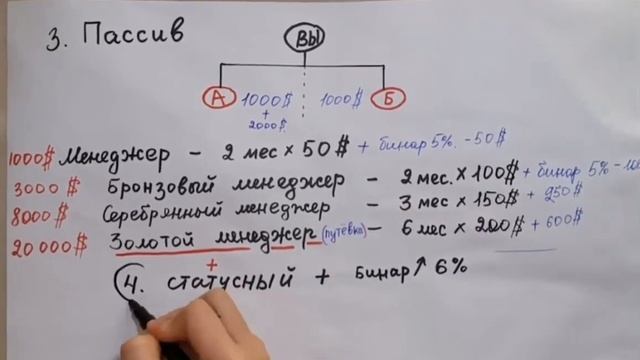 3. Пассив
ВЫ
А 1000$ 1000$ Б
+
2000$
1000$ Менеджер - 2 мес × 50$ + бинар 5%. - 50$
3000$ Бронзовый менеджер - 2 мес. × 100$ + бинар 5%
8000$ Серебрянный менеджер - 3 мес × 150$ + 250$
20 000$ Золотой менеджер (путёвка) - 6 мес × 200$ + 600$
+
4. статусный + бинар ↑ 6%